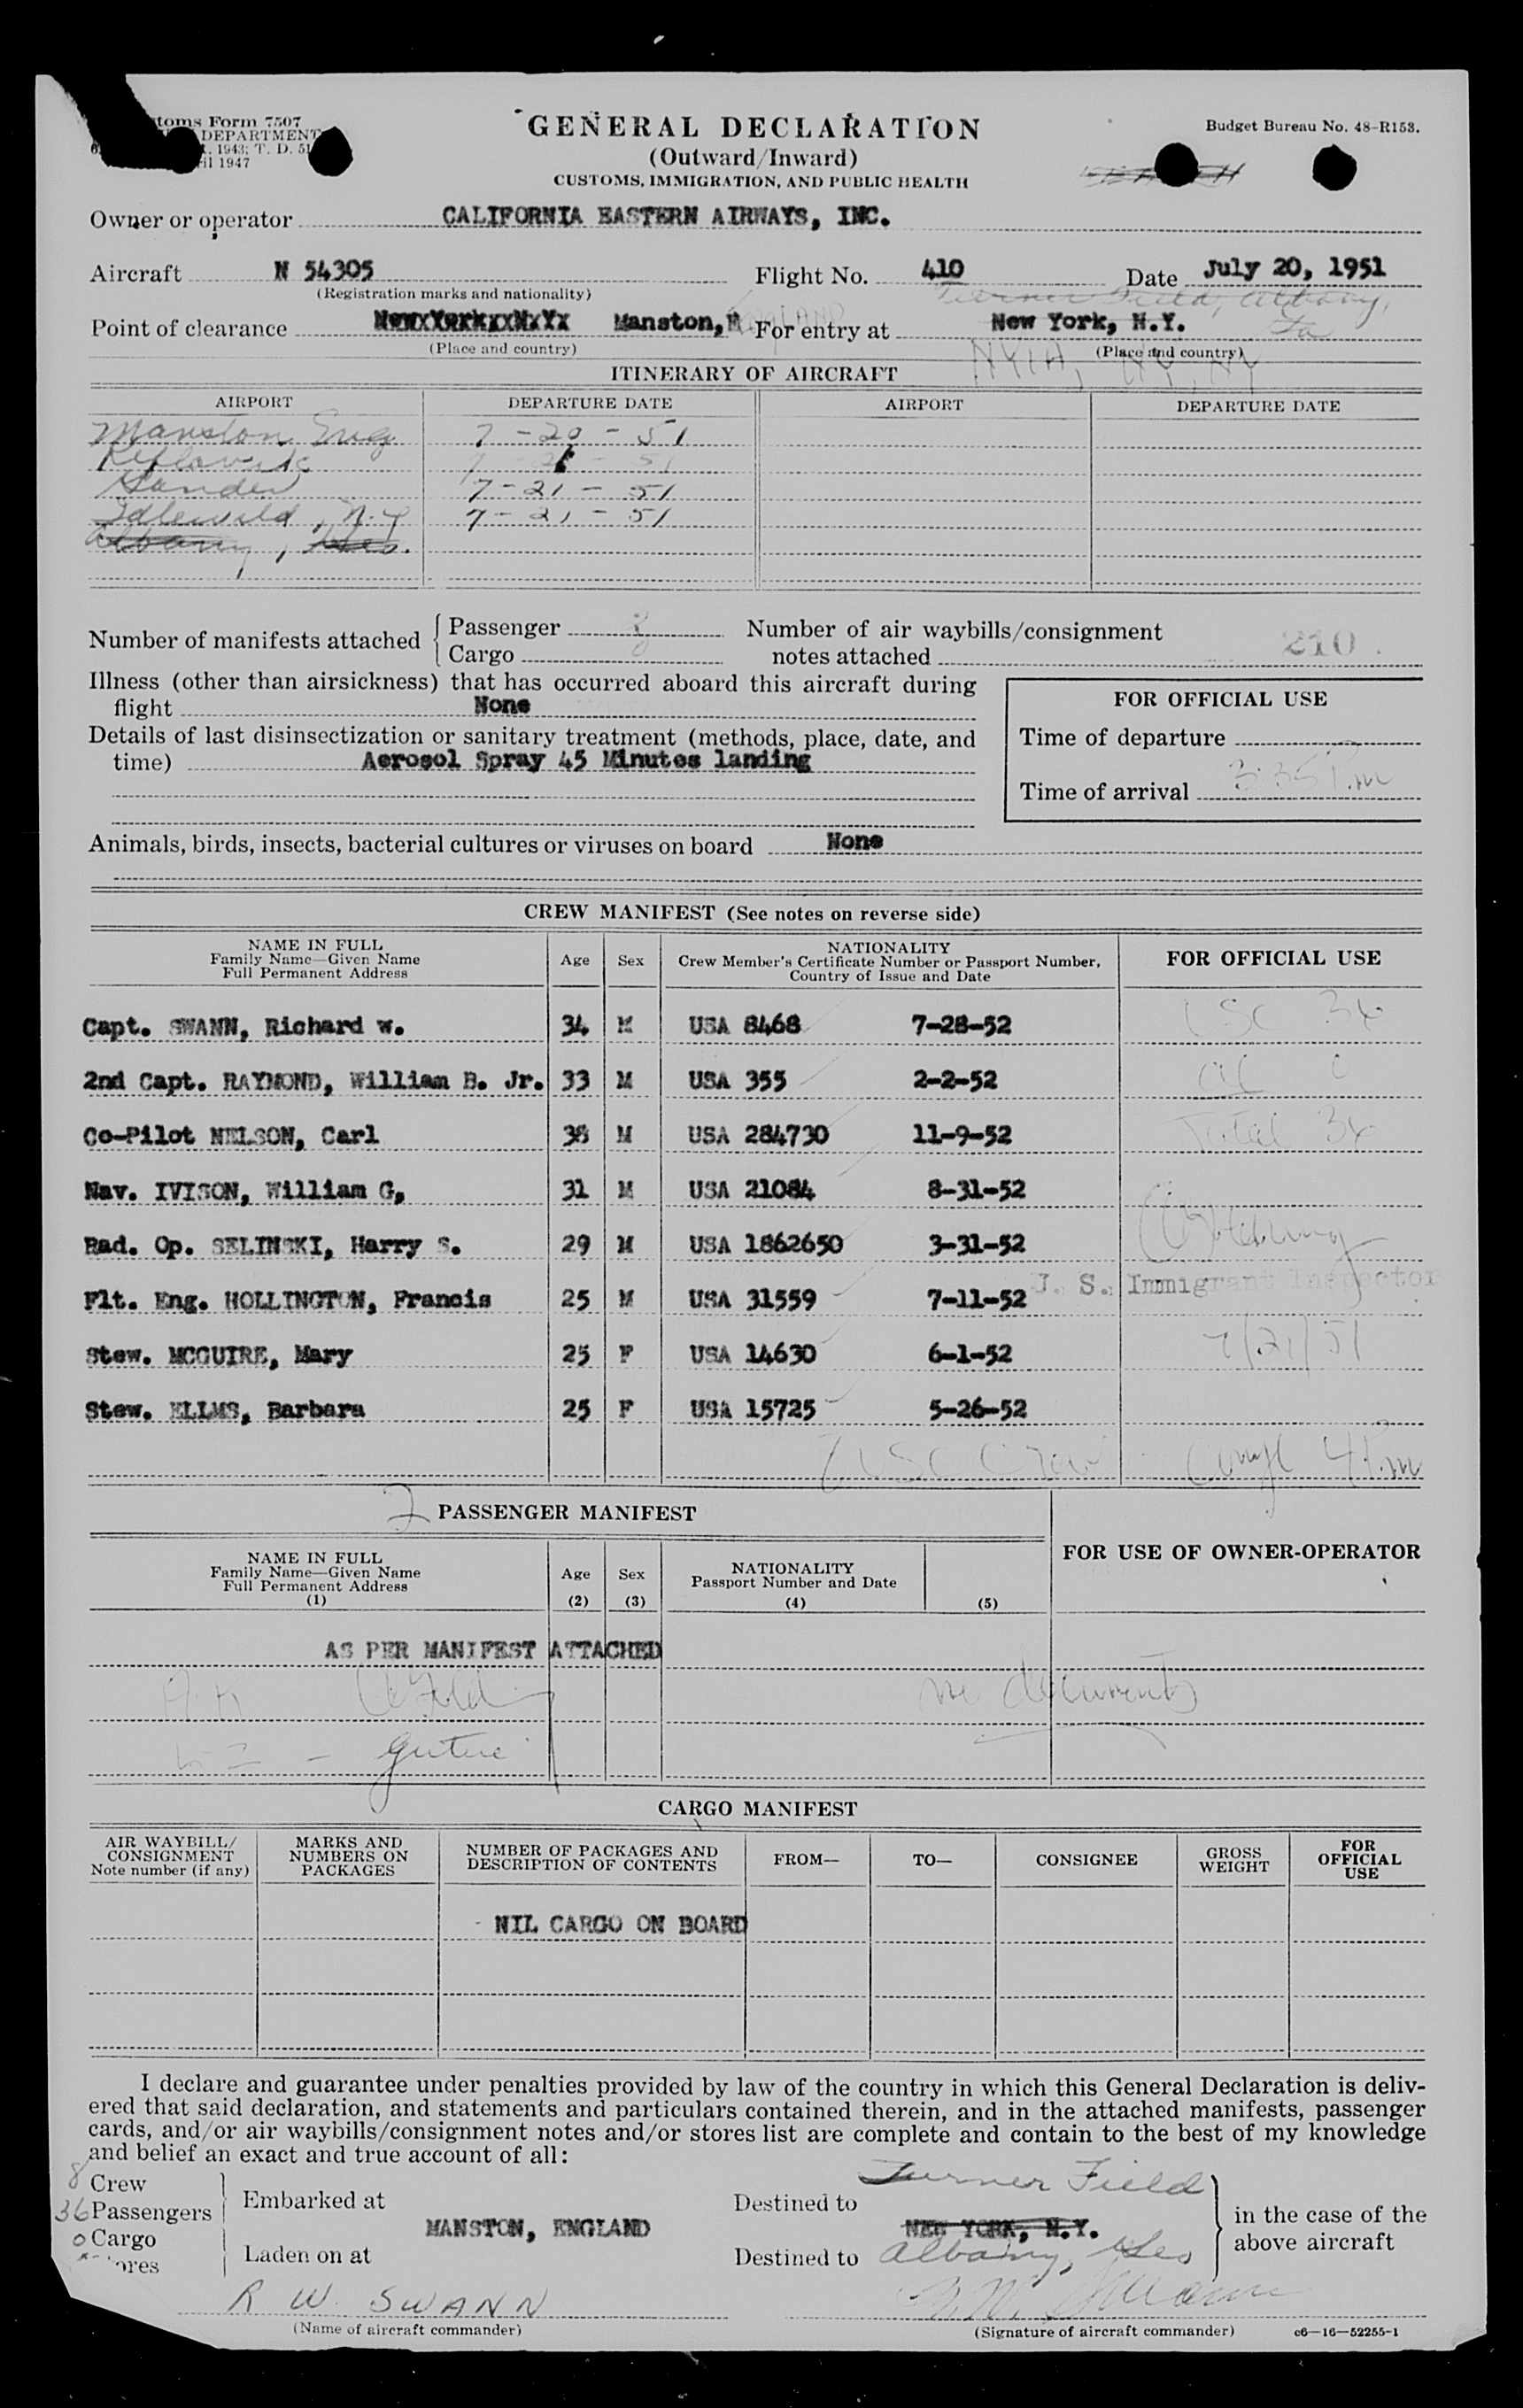 toms Form 7507
DEPARTMENT
1943; T. D. 51
il 1947
GENERAL DECLARATION
(Outward/Inward)
CUSTOMS, IMMIGRATION, AND PUBLIC HEALTH
Budget Bureau No. 48-R153.
Owner or operator CALIFORNIA EASTERN AIRWAYS, INC.
Aircraft N 54305 Flight No. 410 Date July 20, 1951
(Registration marks and nationality)
Turner Field, Albany, Ga
Point of clearance NewxYorkxxNxYx Manston, England For entry at New York, N.Y.
(Place and country) NYIA, NY, NY (Place and country)
ITINERARY OF AIRCRAFT
AIRPORT DEPARTURE DATE AIRPORT DEPARTURE DATE
Manston Eng 7-20-51
Keflavik
Gander 7-21-51
Idlewild, N.Y 7-21-51
Albany, Geo.
Number of manifests attached Passenger
Cargo
Number of air waybills/consignment
notes attached
210
Illness (other than airsickness) that has occurred aboard this aircraft during
flight None
Details of last disinsectization or sanitary treatment (methods, place, date, and
time) Aerosol Spray 45 Minutes landing
FOR OFFICIAL USE
Time of departure
Time of arrival 3:35 P.m
Animals, birds, insects, bacterial cultures or viruses on board None
CREW MANIFEST (See notes on reverse side)
NAME IN FULL
Family Name—Given Name
Full Permanent Address
Age
Sex
NATIONALITY
Crew Member's Certificate Number or Passport Number,
Country of Issue and Date
FOR OFFICIAL USE
Capt. SWANN, Richard W. 34 M USA 8468 7-28-52 USC 34
2nd Capt. RAYMOND, William B. Jr. 33 M USA 355 2-2-52
Co-Pilot NELSON, Carl 38 M USA 284730 11-9-52 Total 34
Nav. IVISON, William G, 31 M USA 21084 8-31-52
Rad. Op. SELINSKI, Harry S. 29 M USA 1862650 3-31-52
Flt. Eng. HOLLINGTON, Francis 25 M USA 31559 7-11-52
U. S. Immigrant Inspector
Stew. MCGUIRE, Mary 25 F USA 14630 6-1-52 7/21/51
Stew. ELLMS, Barbara 25 F USA 15725 5-26-52
USC Crew
PASSENGER MANIFEST
NAME IN FULL
Family Name—Given Name
Full Permanent Address
(1)
Age
(2)
Sex
(3)
NATIONALITY
Passport Number and Date
(4)
(5)
FOR USE OF OWNER-OPERATOR
AS PER MANIFEST ATTACHED
documents
CARGO MANIFEST
AIR WAYBILL/
CONSIGNMENT
Note number (if any)
MARKS AND
NUMBERS ON
PACKAGES
NUMBER OF PACKAGES AND
DESCRIPTION OF CONTENTS
FROM—
TO—
CONSIGNEE
GROSS
WEIGHT
FOR
OFFICIAL
USE
- NIL CARGO ON BOARD
I declare and guarantee under penalties provided by law of the country in which this General Declaration is deliv-
ered that said declaration, and statements and particulars contained therein, and in the attached manifests, passenger
cards, and/or air waybills/consignment notes and/or stores list are complete and contain to the best of my knowledge
and belief an exact and true account of all:
8 Crew
36 Passengers
0 Cargo
ores
Embarked at
MANSTON, ENGLAND
Laden on at
Turner Field
Destined to
NEW YORK, N.Y.
Destined to Albany, Geo
in the case of the
above aircraft
R W. SWANN
(Name of aircraft commander)
R. W. Swann
(Signature of aircraft commander)
c6—16—52255-1